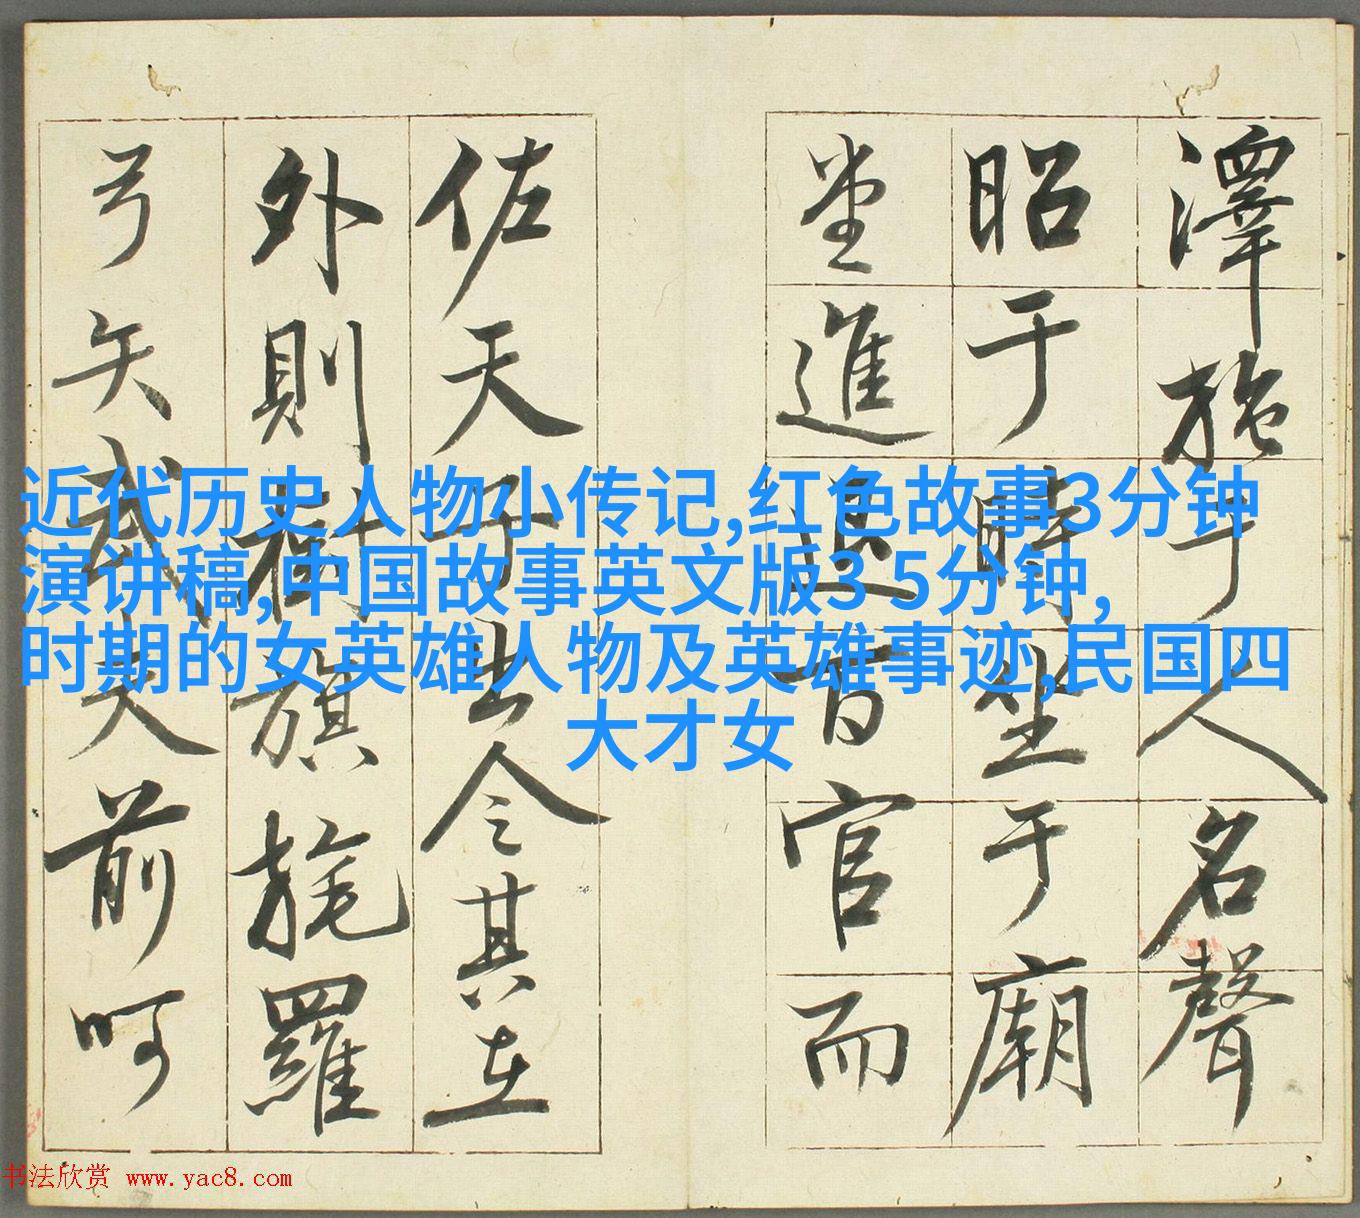 澤施于人名聲
昭于時坐于廟
堂進退百官而
佐天子出令其在
外則樹旗旄羅
弓矢武夫前呵
近代历史人物小传记,红色故事3分钟
演讲稿,中国故事英文版3 5分钟,
时期的女英雄人物及英雄事迹,民国四
大才女
书法欣赏 www.yac8.com